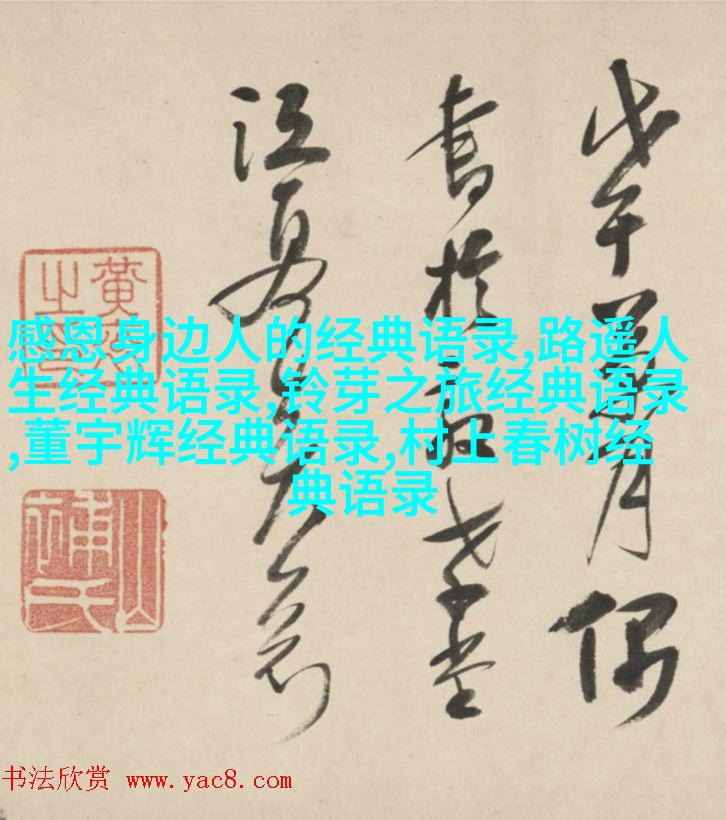 戊午
月偶
書於
堂
江夏
感恩身边人的经典语录,路遥人
生经典语录,铃芽之旅经典语录
,董宇辉经典语录,村上春树经
典语录
书法欣赏 www.yac8.com